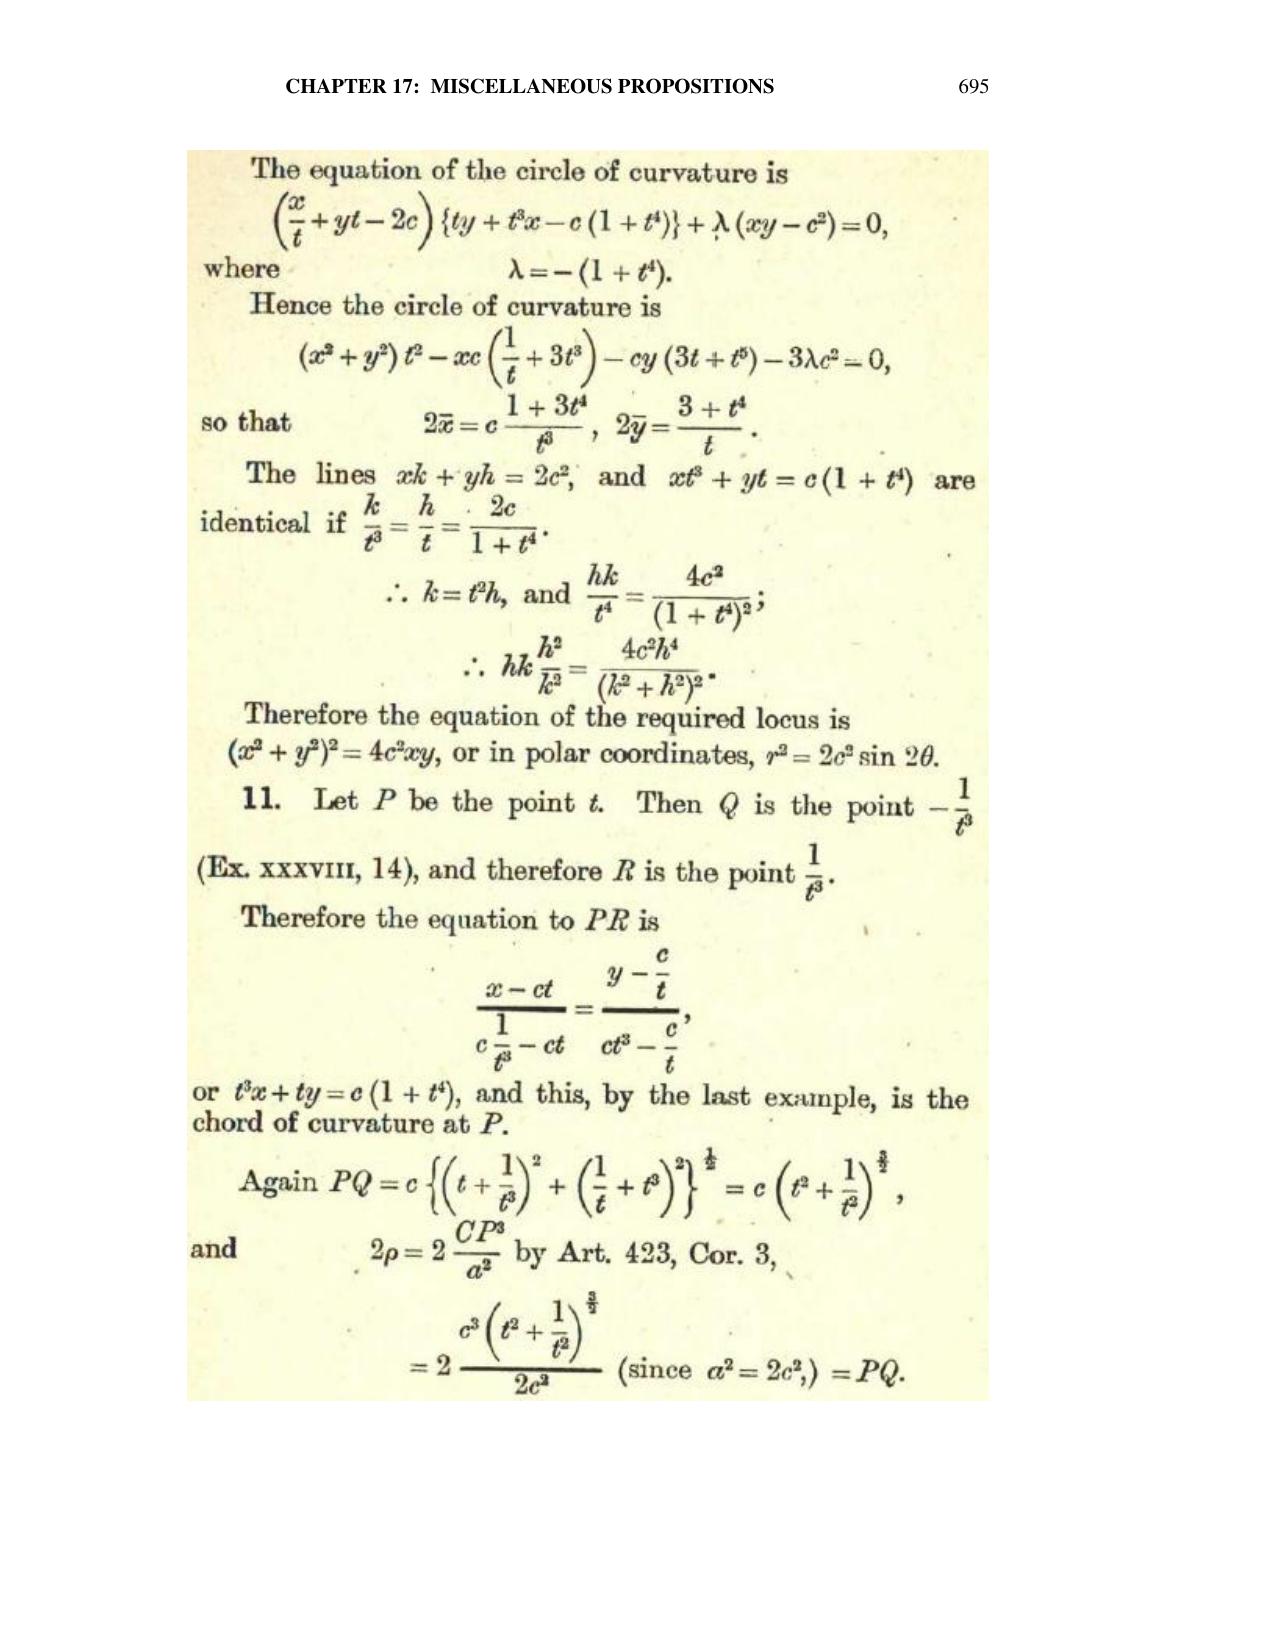 CHAPTER 17: MISCELLANEOUS PROPOSITIONS 695
The equation of the circle of curvature is
(x/t + yt − 2c) {ty + t³x − c (1 + t⁴)} + λ (xy − c²) = 0,
where λ = − (1 + t⁴).
Hence the circle of curvature is
(x² + y²) t² − xc (1/t + 3t³) − cy (3t + t⁵) − 3λc² = 0,
so that 2x̄ = c (1 + 3t⁴)/t³ , 2ȳ = (3 + t⁴)/t .
The lines xk + yh = 2c², and xt³ + yt = c (1 + t⁴) are
identical if k/t³ = h/t = 2c/(1 + t⁴).
∴ k = t²h, and hk/t⁴ = 4c²/(1 + t⁴)²;
∴ hk h²/k² = 4c²h⁴/(k² + h²)².
Therefore the equation of the required locus is
(x² + y²)² = 4c²xy, or in polar coordinates, r² = 2c² sin 2θ.
11. Let P be the point t. Then Q is the point − 1/t³
(Ex. XXXVIII, 14), and therefore R is the point 1/t³.
Therefore the equation to PR is
(x − ct)/(c 1/t³ − ct) = (y − c/t)/(ct³ − c/t),
or t³x + ty = c (1 + t⁴), and this, by the last example, is the
chord of curvature at P.
Again PQ = c {(t + 1/t³)² + (1/t + t³)²}^½ = c (t² + 1/t²)^(3/2),
and 2ρ = 2 CP³/a² by Art. 423, Cor. 3,
= 2 c³ (t² + 1/t²)^(3/2) / 2c² (since a² = 2c²,) = PQ.